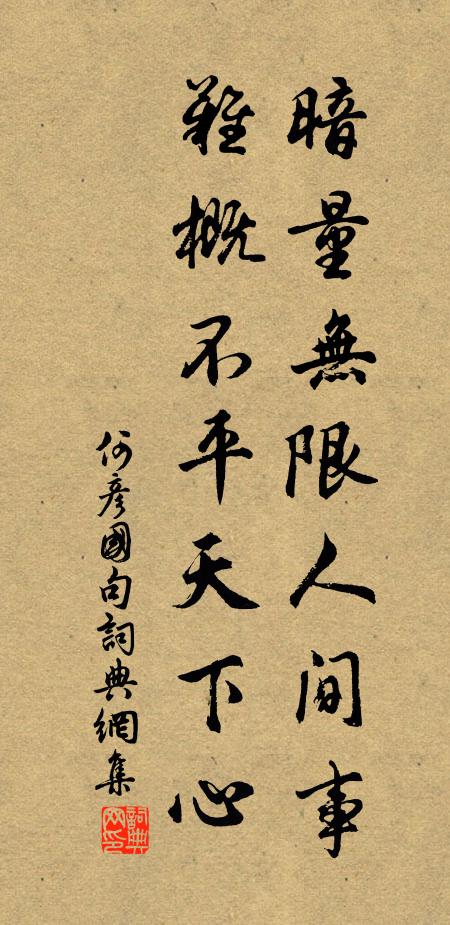 暗量無限人間事
難概不平天下心
何彥國句詞典網集
詞典網印